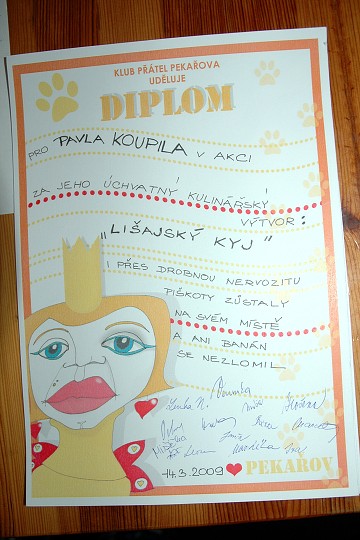 KLUB PŘÁTEL PEKAŘOVA
UDĚLUJE
DIPLOM
PRO PAVLA KOUPILA V AKCI
ZA JEHO ÚCHVATNÝ KULINÁŘSKÝ
VÝTVOR:
„LIŠAJSKÝ KYJ"
I PŘES DROBNOU NERVOZITU
PIŠKOTY ZŮSTALY
NA SVÉM MÍSTĚ
A ANI BANÁN
SE NEZLOMIL
Lenka N.
14.3.2009 PEKAROV